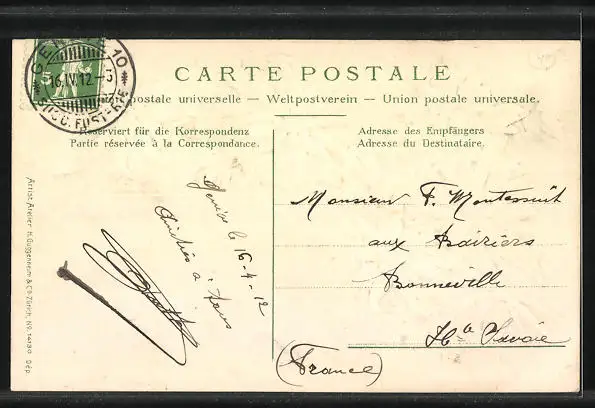 GENÈVE 10
16.IV.12-5
SUCC. FUSTERIE
5
CARTE POSTALE
postale universelle — Weltpostverein — Union postale universale.
Reserviert für die Korrespondenz
Partie réservée à la Correspondance.
Adresse des Empfängers
Adresse du Destinataire.
Genève le 16-4-12
Amitiés à
tous
Monsieur F. Montessuit
aux
Bonneville
Hte Savoie
(France)
Artist. Atelier H. Guggenheim & Co. Zürich, No. 14430 Dép.